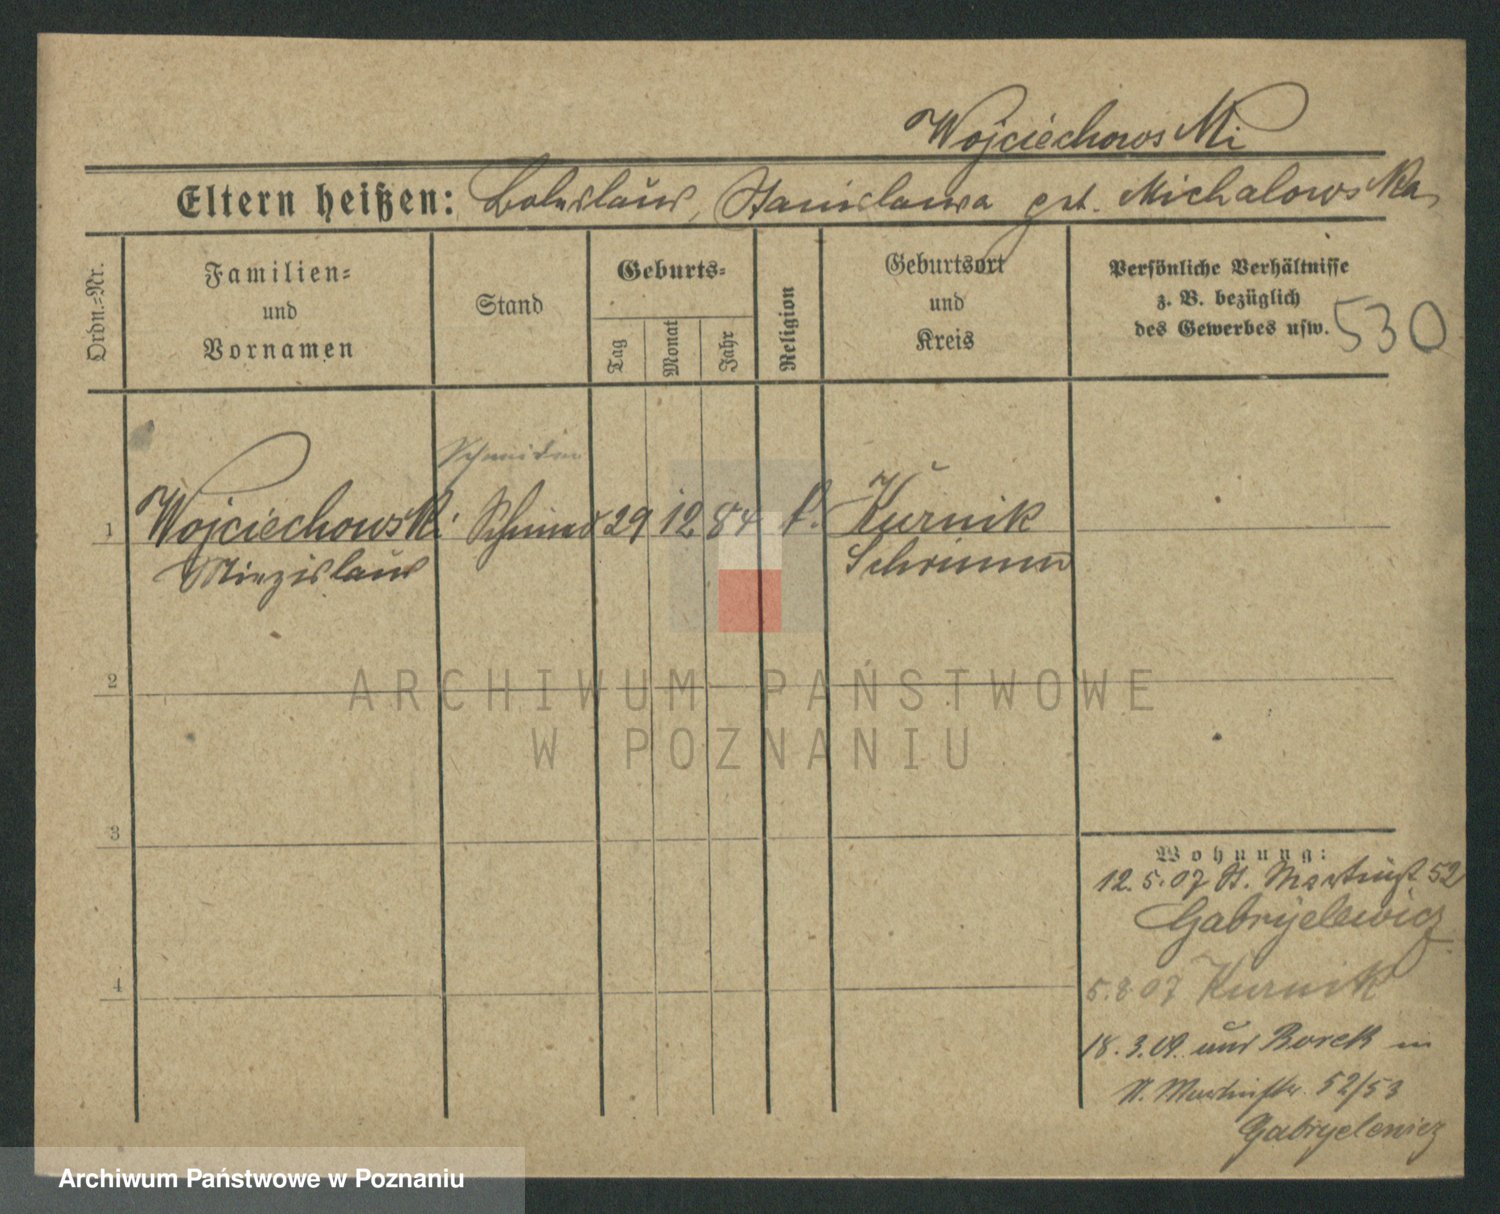 Wojciechowski
Eltern heißen: Boleslaus, Stanislawa geb. Michalowska,
Ordn.=Nr.
Familien=
und
Vornamen
Stand
Geburts=
Tag
Monat
Jahr
Religion
Geburtsort
und
Kreis
Persönliche Verhältnisse
z. B. bezüglich
des Gewerbes usw.
530
1 Wojciechowski Schmied 29 12 84 k. Kurnik
Miezislaus Schrimm
2
3
4
Wohnung:
12.5.07 St. Martinst 52
Gabryelewicz
5.8 07 Kurnik
18.3.09. aus Borek in
St. Martinstr. 52/53
Gabryelewicz
ARCHIWUM PAŃSTWOWE
W POZNANIU
Archiwum Państwowe w Poznaniu